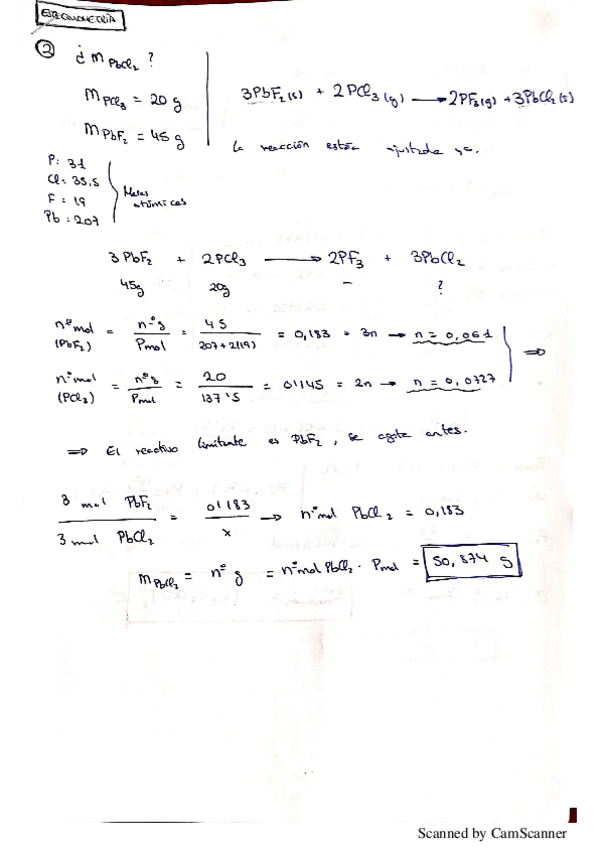 ESTEQUIOMETRÍA
② ¿ m PbCl₂ ?
m PCl₃ = 20 g
m PbF₂ = 45 g
3PbF₂(s) + 2PCl₃(g) ⟶ 2PF₃(g) + 3PbCl₂(s)
la reacción están ajustada ya.
P: 31
Cl: 35,5
F: 19
Pb: 207
Masas atómicas
3 PbF₂ + 2PCl₃ ⟶ 2PF₃ + 3PbCl₂
45g 20g – ?
nº mol (PbF₂) = nº g / Pmol = 45 / 207+2(19) = 0,183 = 3n → n = 0,061
nº mol (PCl₃) = nº g / Pmol = 20 / 137'5 = 0'145 = 2n → n = 0,0727
⇒ El reactivo limitante es PbF₂, se agota antes.
3 mol PbF₂ / 3 mol PbCl₂ = 0'183 / x → nº mol PbCl₂ = 0,183
m PbCl₂ = nº g = nº mol PbCl₂ · Pmol = 50,874 g
Scanned by CamScanner